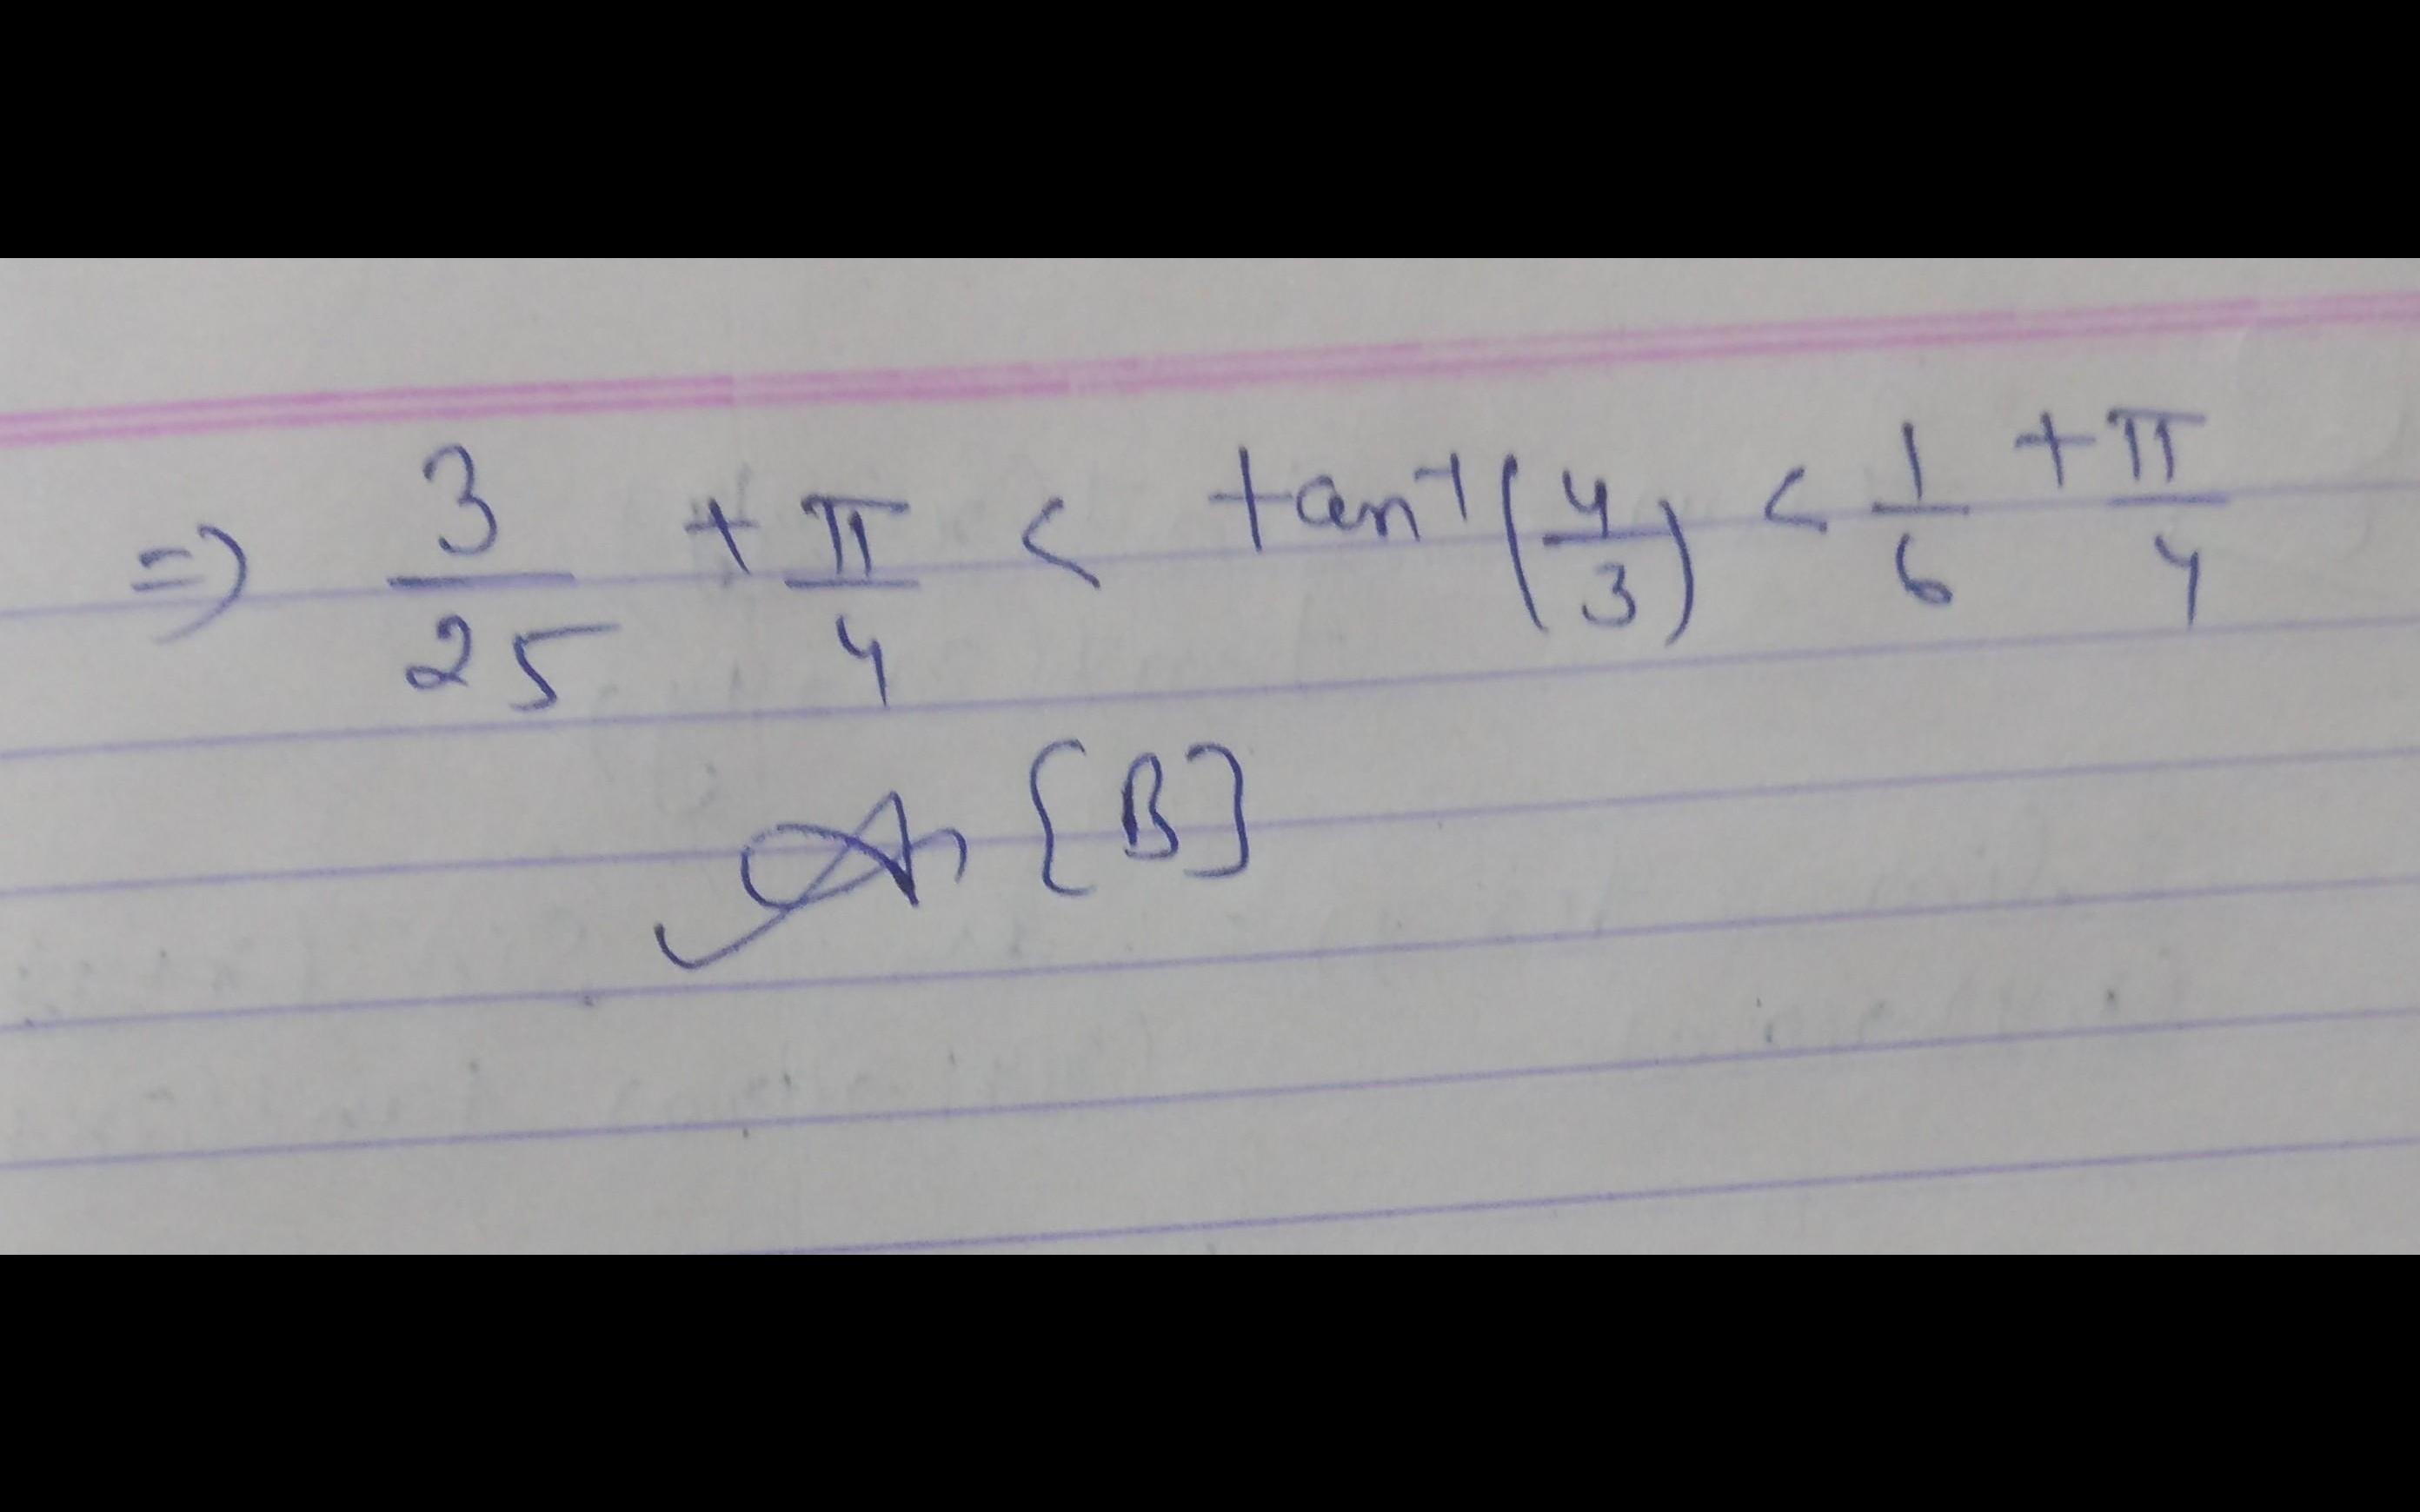 ⇒ 3/25 + π/4 < tan⁻¹(4/3) < 1/6 + π/4
An [B]